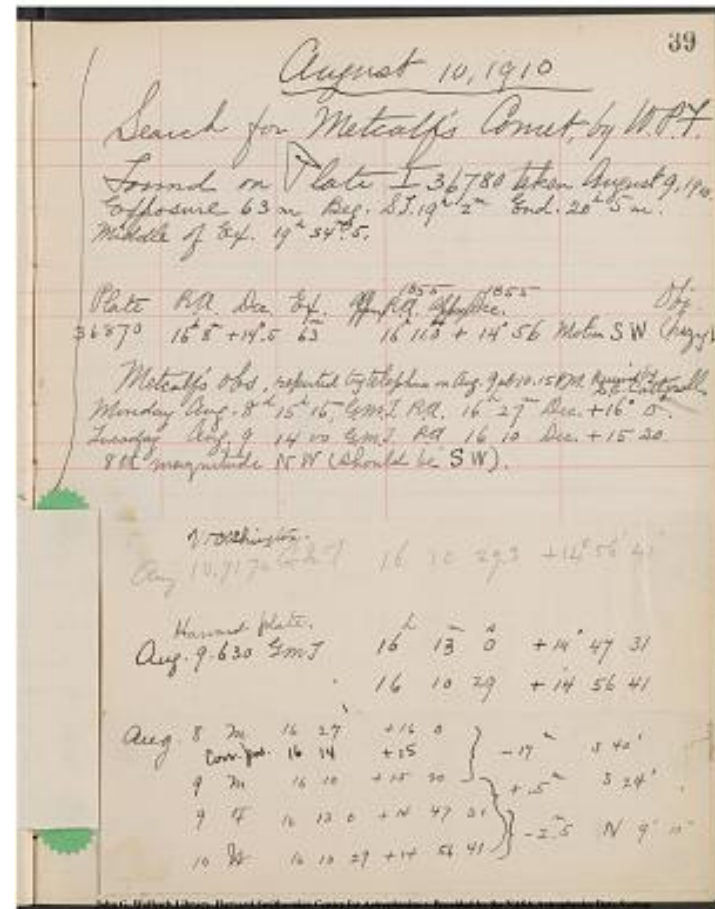 39
August 10, 1910
Search for Metcalf's Comet, by W.P.F.
Found on Plate I 36780 taken August 9, 1910.
Exposure 63 m Beg. S.T. 19h 2m End. 20h 5m.
Middle of Ex. 19h 34m.5.
Plate R.A. Dec. Ex. R.A. 1855 Dec. 1855 Obj.
36870 16h 8 +14°.5 63m 16h 11.3 + 14° 56 Motion S W (hazy)
Metcalf's obs. reported by telephone on Aug. 9 at 10.15 P.M.
Monday Aug. 8d 15h 15, G.M.T. R.A. 16h 27m Dec. +16° 0'.
Tuesday Aug. 9 14 00 G.M.T. RA 16 10 Dec. + 15 20
8th magnitude N W (should be S W).
Washington.
Aug 16 10 29.3 +14° 56' 41"
Harvard plate.
Aug. 9.630 G.M.T 16h 13m 0s +14° 47 31
16 10 29 +14 56 41
Aug. 8 M 16 27 +16 0
16 14 +15 -17m S 40'
9 M 16 10 +15 20 +.5m S 24'
9 F 16 13 0 +14 47 31
10 W 16 10 29 +14 56 41 -2.5m N 9'